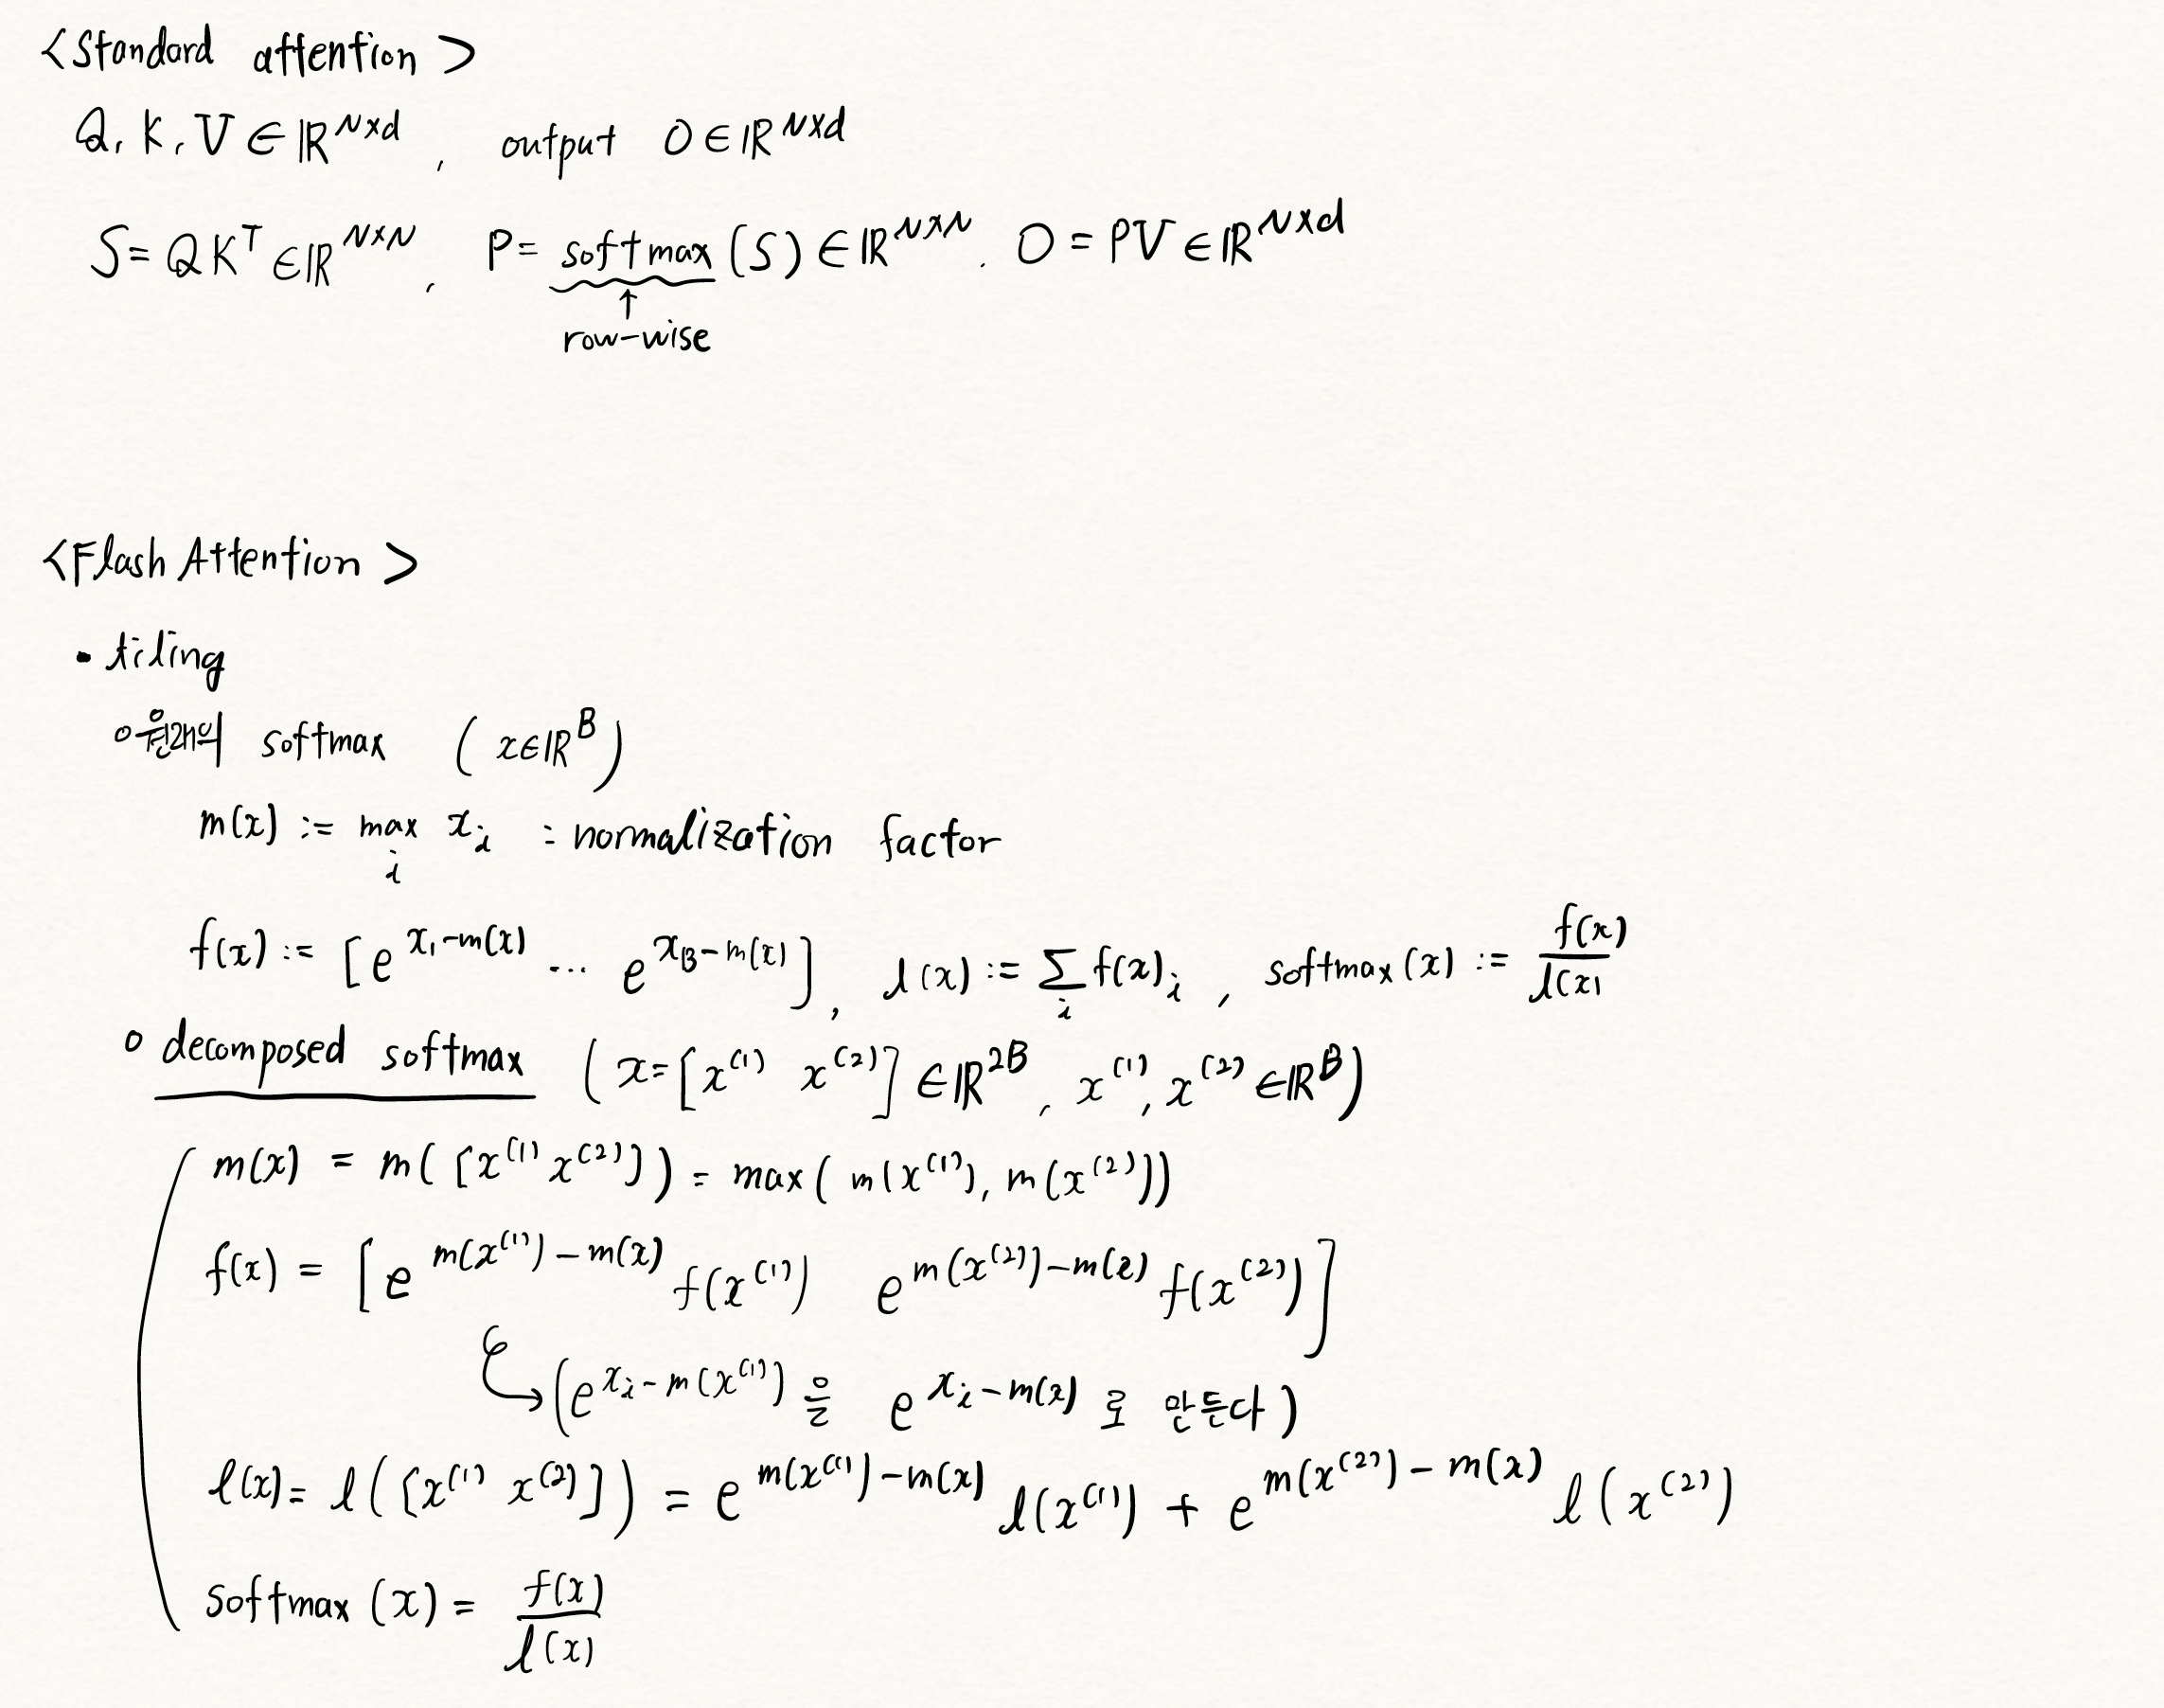 <Standard attention>
Q, K, V ∈ ℝ^{N×d}, output O ∈ ℝ^{N×d}
S = QK^T ∈ ℝ^{N×N}, P = softmax(S) ∈ ℝ^{N×N}. O = PV ∈ ℝ^{N×d}
↑
row-wise
<Flash Attention>
• tiling
o 원래의 softmax (x ∈ ℝ^B)
m(x) := max_i x_i : normalization factor
f(x) := [e^{x_1-m(x)} ... e^{x_B-m(x)}], l(x) := ∑_i f(x)_i, softmax(x) := f(x)/l(x)
o decomposed softmax (x = [x^{(1)} x^{(2)}] ∈ ℝ^{2B}, x^{(1)}, x^{(2)} ∈ ℝ^B)
m(x) = m([x^{(1)} x^{(2)}]) = max(m(x^{(1)}), m(x^{(2)}))
f(x) = [e^{m(x^{(1)})-m(x)} f(x^{(1)}) e^{m(x^{(2)})-m(x)} f(x^{(2)})]
↳ (e^{x_i-m(x^{(1)})} 을 e^{x_i-m(x)} 로 만든다)
l(x) = l([x^{(1)} x^{(2)}]) = e^{m(x^{(1)})-m(x)} l(x^{(1)}) + e^{m(x^{(2)})-m(x)} l(x^{(2)})
softmax(x) = f(x)/l(x)